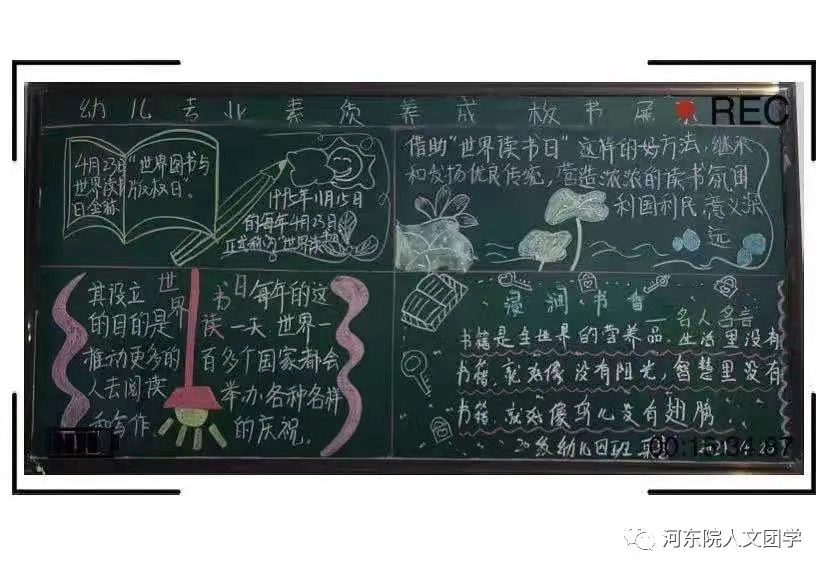 幼儿专业素质养成 板书展
REC
4月23日"世界图书与
世界读书版权日"。
日全称
1995年11月15日
的每年4月23日
正式称为"世界读书
借助"世界读书日"这样的好方法,继承
和发扬优良传统,营造浓浓的读书氛围
利国利民,意义深
远
其设立
的目的是
推动更多的
人去阅读
和写作
世界读书日
每年的这
一天 世界一
百多个国家都会
举办各种各样
的庆祝。
浸润书香
——名人名言
书籍是全世界的营养品,生活里没有
书籍,就好像没有阳光,智慧里没有
书籍,就好像鸟儿没有翅膀.
20级幼儿四班
河东院人文团学